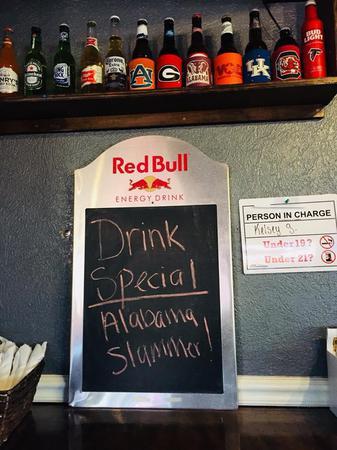 HENRY'S
Heineken
Corona
Extra
AU
G
ALABAMA
UK
BUD
LIGHT
Red Bull
ENERGY DRINK
Drink
Special
Alabama
Slammer!
PERSON IN CHARGE
Kelsey S.
Under 19?
Under 21?